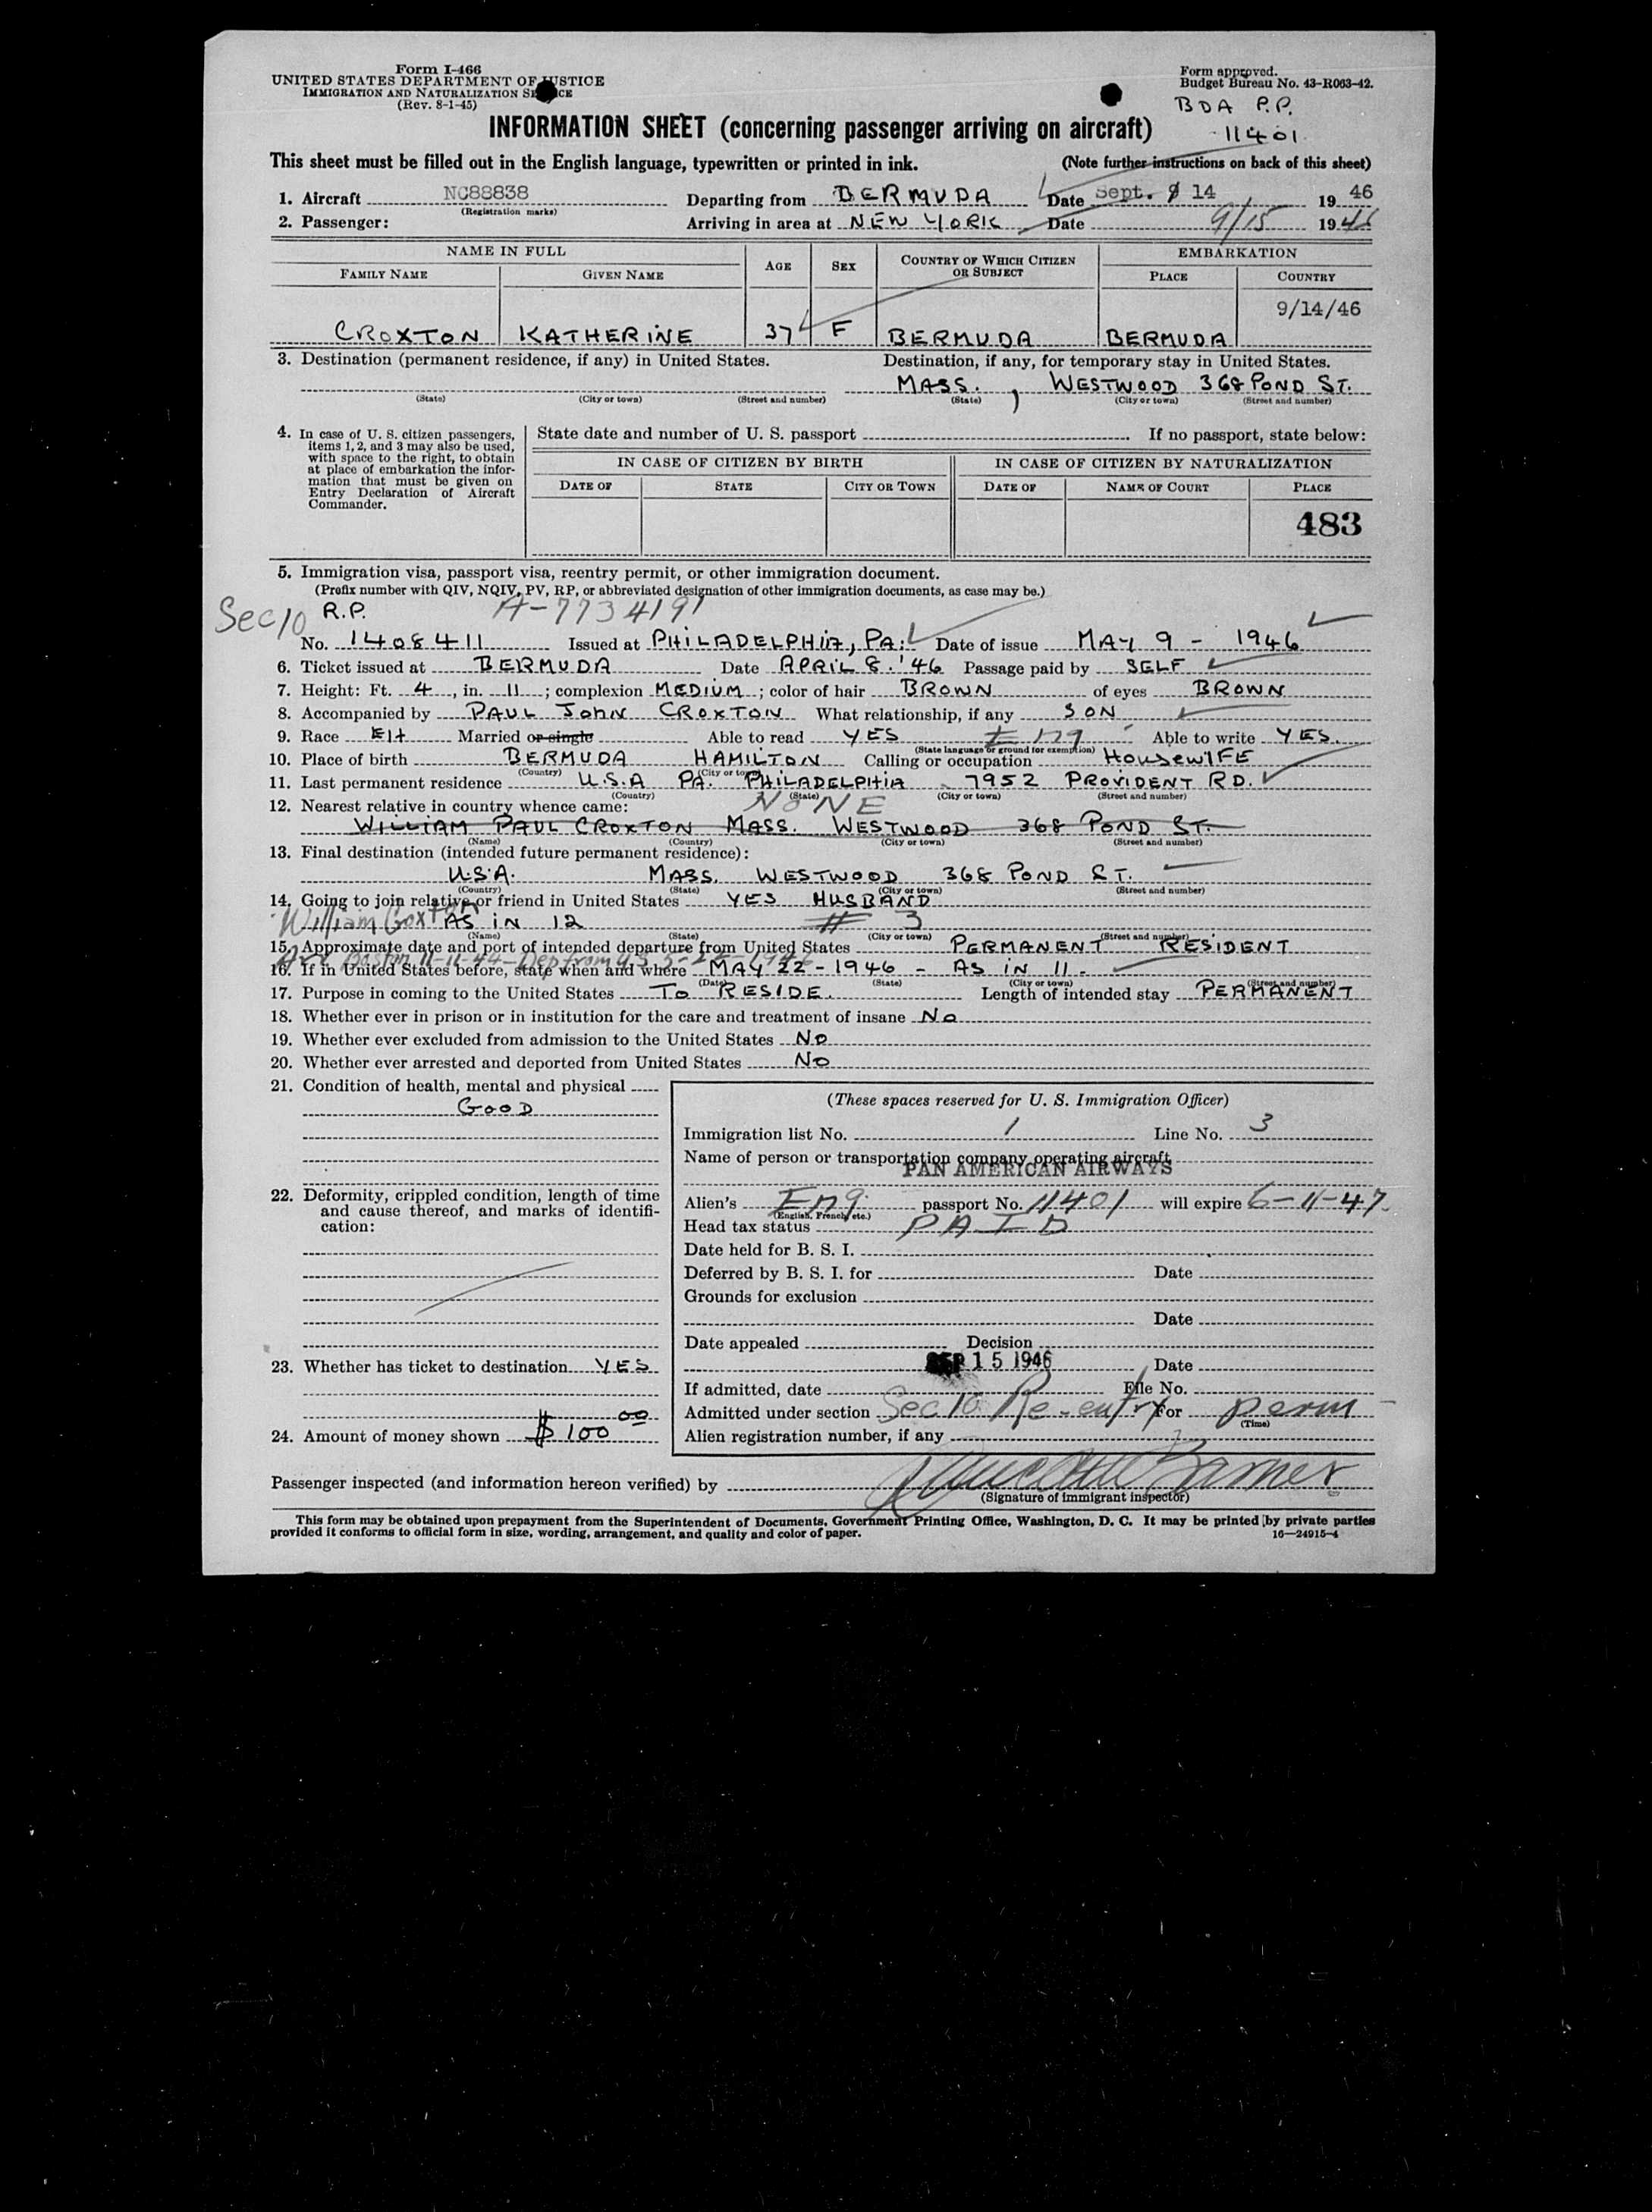 Form I-466
UNITED STATES DEPARTMENT OF JUSTICE
IMMIGRATION AND NATURALIZATION SERVICE
(Rev. 8-1-45)
Form approved.
Budget Bureau No. 43-R063-42.
BDA P.P.
11401
INFORMATION SHEET (concerning passenger arriving on aircraft)
This sheet must be filled out in the English language, typewritten or printed in ink. (Note further instructions on back of this sheet)
1. Aircraft NC88838 Departing from BERMUDA Date Sept. 14 1946
(Registration marks)
2. Passenger: Arriving in area at NEW YORK Date 9/15 1946
NAME IN FULL AGE SEX COUNTRY OF WHICH CITIZEN OR SUBJECT EMBARKATION
FAMILY NAME GIVEN NAME PLACE COUNTRY
9/14/46
CROXTON KATHERINE 37 F BERMUDA BERMUDA
3. Destination (permanent residence, if any) in United States. Destination, if any, for temporary stay in United States.
MASS., WESTWOOD 368 POND ST.
(State) (City or town) (Street and number) (State) (City or town) (Street and number)
4. In case of U. S. citizen passengers, items 1, 2, and 3 may also be used, with space to the right, to obtain at place of embarkation the information that must be given on Entry Declaration of Aircraft Commander.
State date and number of U. S. passport If no passport, state below:
IN CASE OF CITIZEN BY BIRTH IN CASE OF CITIZEN BY NATURALIZATION
DATE OF STATE CITY OR TOWN DATE OF NAME OF COURT PLACE
483
5. Immigration visa, passport visa, reentry permit, or other immigration document.
(Prefix number with QIV, NQIV, PV, RP, or abbreviated designation of other immigration documents, as case may be.)
Sec 10 R.P. A-7734191
No. 1408411 Issued at PHILADELPHIA, PA. Date of issue MAY 9 - 1946
6. Ticket issued at BERMUDA Date APRIL 8. '46 Passage paid by SELF
7. Height: Ft. 4, in. 11; complexion MEDIUM; color of hair BROWN of eyes BROWN
8. Accompanied by PAUL JOHN CROXTON What relationship, if any SON
9. Race Married or single Able to read YES Eng Able to write YES.
(State language or ground for exemption)
10. Place of birth BERMUDA HAMILTON Calling or occupation HOUSEWIFE
(Country) (City or town)
11. Last permanent residence U.S.A PA. PHILADELPHIA 7952 PROVIDENT RD.
(Country) (State) (City or town) (Street and number)
12. Nearest relative in country whence came: NONE
WILLIAM PAUL CROXTON MASS. WESTWOOD 368 POND ST.
(Name) (Country) (City or town) (Street and number)
13. Final destination (intended future permanent residence):
U.S.A. MASS. WESTWOOD 368 POND ST.
(Country) (State) (City or town) (Street and number)
14. Going to join relative or friend in United States YES HUSBAND
William Croxton AS IN 12 # 3
(Name) (State) (City or town) (Street and number)
15. Approximate date and port of intended departure from United States PERMANENT RESIDENT
Arr Boston 11-11-44 - Dep from U.S. 5-22-1946
16. If in United States before, state when and where MAY 22 - 1946 - AS IN 11 -
(Date) (State) (City or town) (Street and number)
17. Purpose in coming to the United States TO RESIDE. Length of intended stay PERMANENT
18. Whether ever in prison or in institution for the care and treatment of insane NO
19. Whether ever excluded from admission to the United States NO
20. Whether ever arrested and deported from United States NO
21. Condition of health, mental and physical
GOOD
22. Deformity, crippled condition, length of time and cause thereof, and marks of identification:
23. Whether has ticket to destination YES
24. Amount of money shown $100 00
(These spaces reserved for U. S. Immigration Officer)
Immigration list No. 1 Line No. 3
Name of person or transportation company operating aircraft
PAN AMERICAN AIRWAYS
Alien's Eng. passport No. 11401 will expire 6-11-47.
(English, French, etc.)
Head tax status PAID
Date held for B. S. I.
Deferred by B. S. I. for Date
Grounds for exclusion
Date
Date appealed Decision
SEP 15 1946 Date
If admitted, date File No.
Admitted under section Sec 10 Re-entry For perm
(Time)
Alien registration number, if any
Passenger inspected (and information hereon verified) by
(Signature of immigrant inspector)
This form may be obtained upon prepayment from the Superintendent of Documents, Government Printing Office, Washington, D. C. It may be printed by private parties
provided it conforms to official form in size, wording, arrangement, and quality and color of paper. 16—24915-4